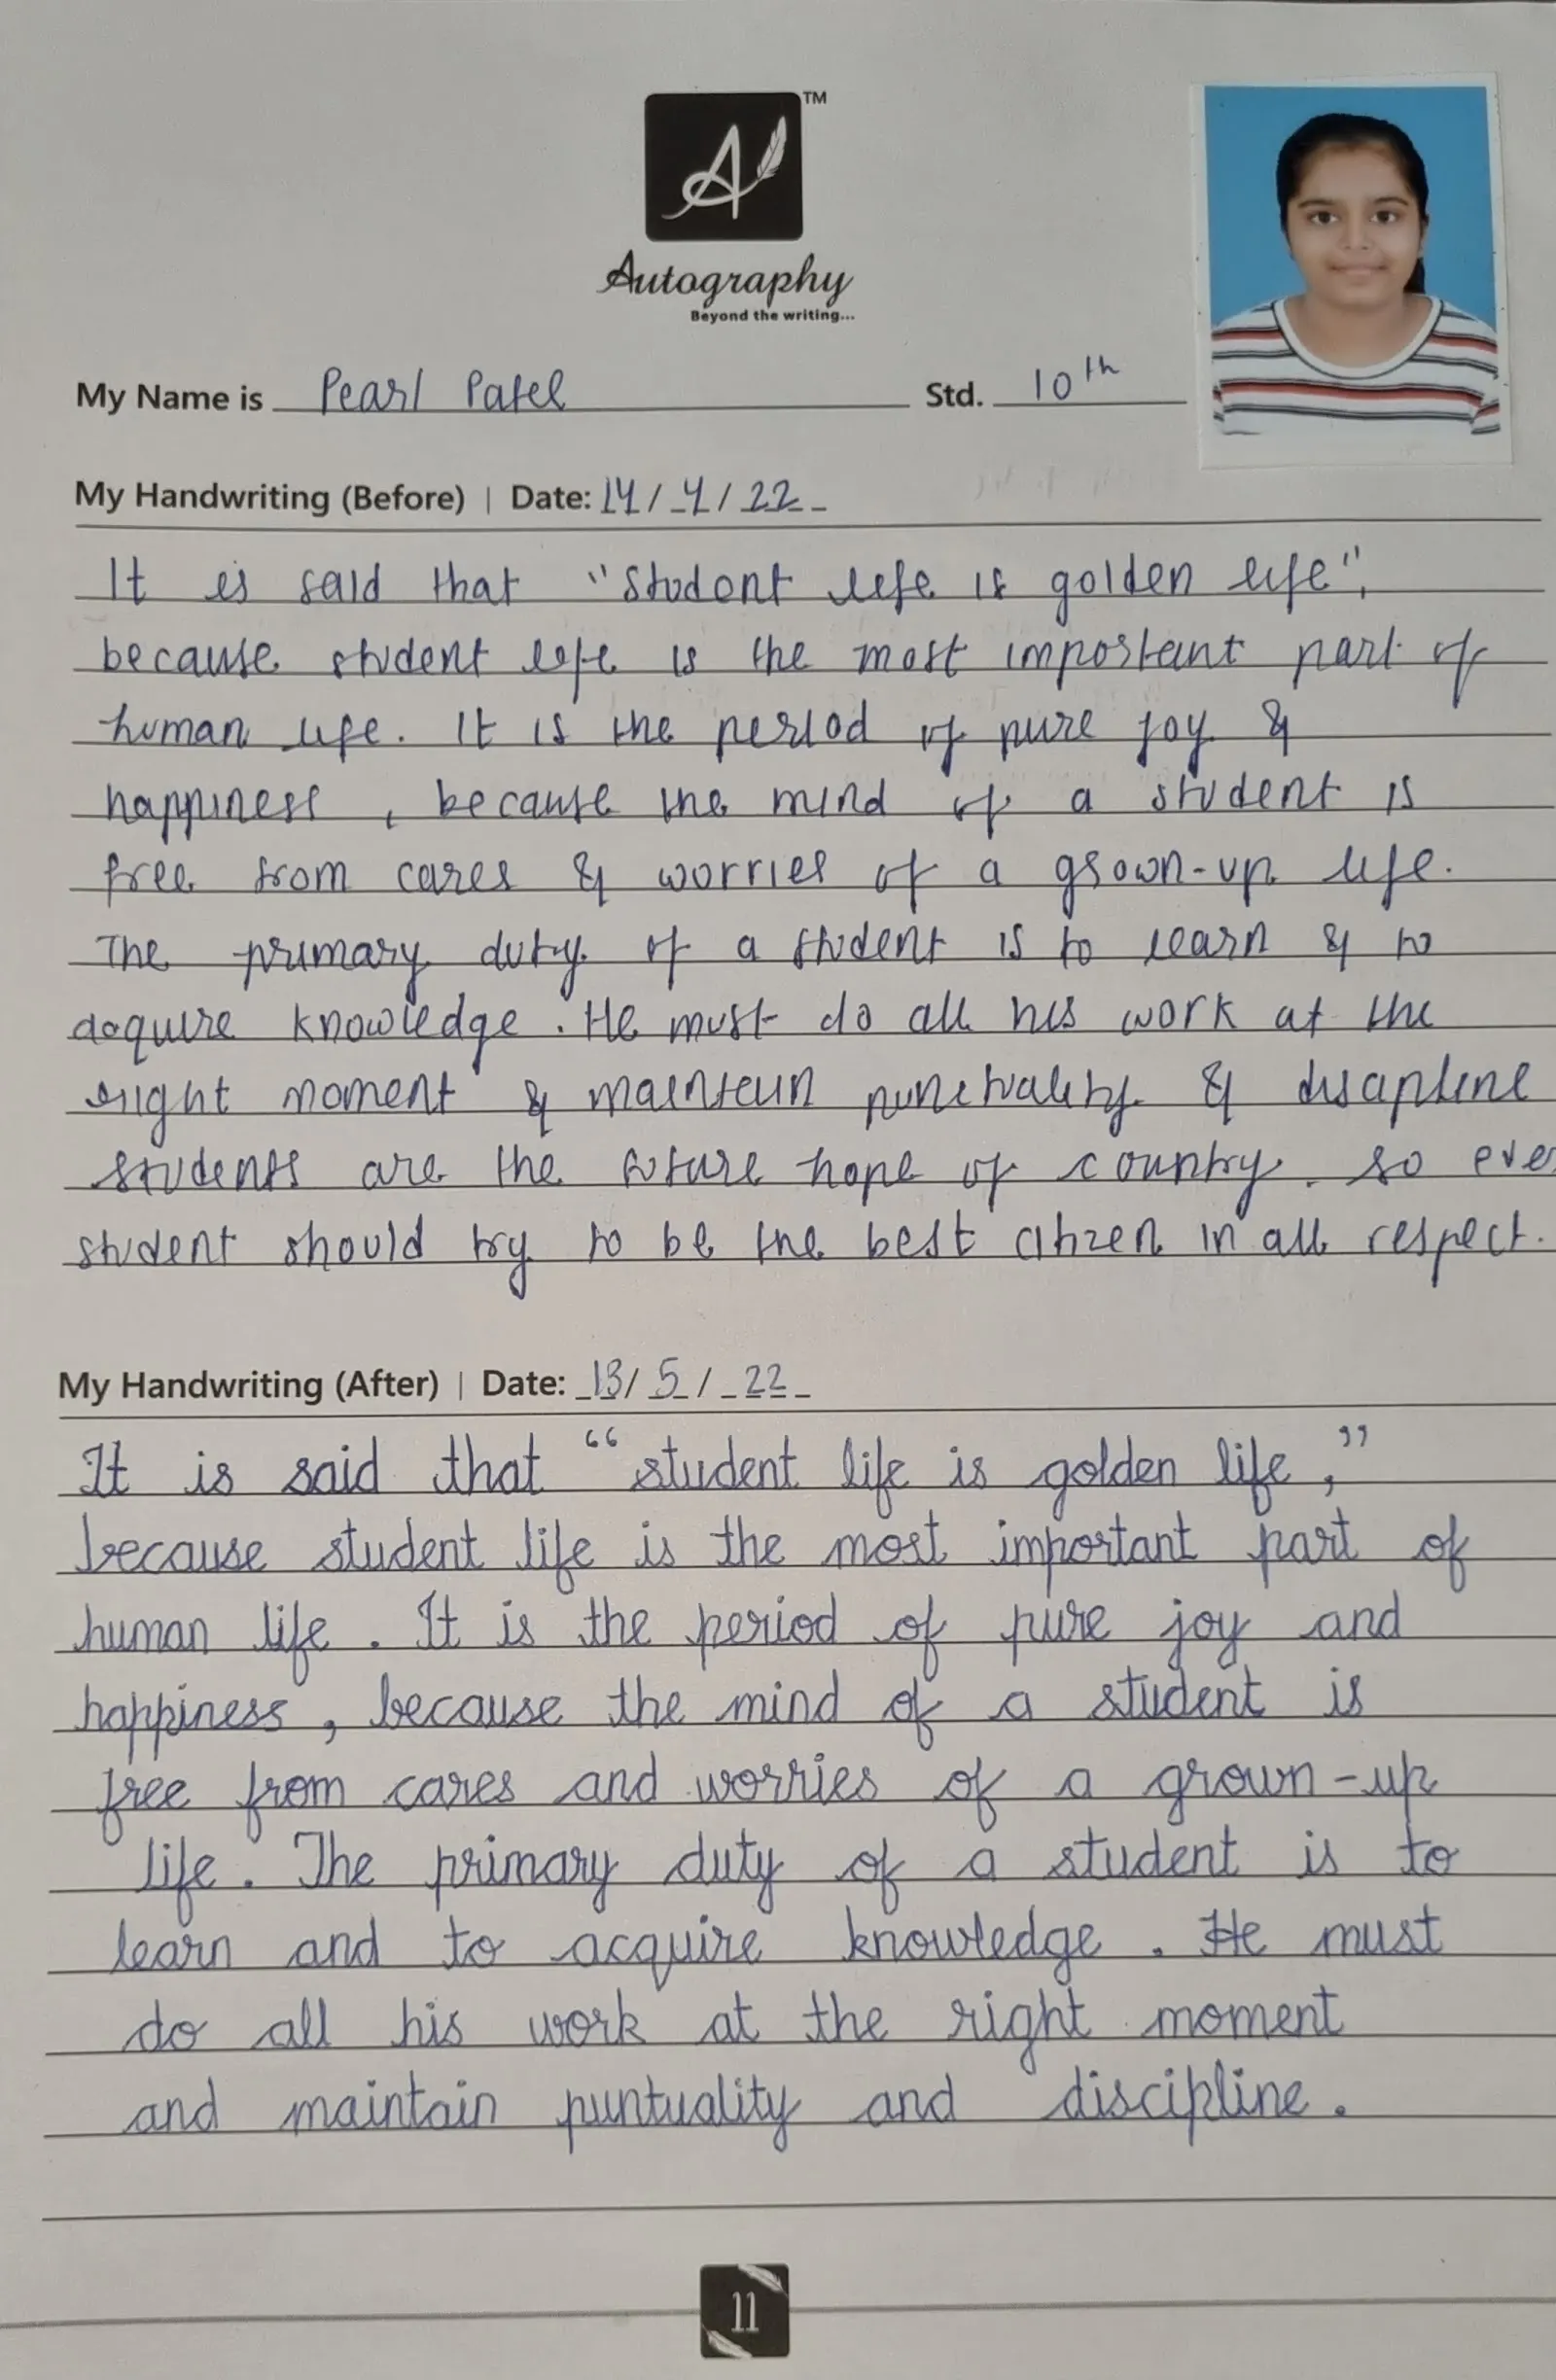 A
TM
Autography
Beyond the writing...
My Name is Pearl Patel Std. 10th
My Handwriting (Before) | Date: 14/4/22
It is said that "student life is golden life",
because student life is the most important part of
human life. It is the period of pure joy &
happiness, because the mind of a student is
free from cares & worries of a grown-up life.
The primary duty of a student is to learn & to
acquire knowledge. He must do all his work at the
right moment & maintain punctuality & discipline
students are the future hope of country. so ever
student should try to be the best citizen in all respect.
My Handwriting (After) | Date: 13/5/22
It is said that “student life is golden life,”
because student life is the most important part of
human life. It is the period of pure joy and
happiness, because the mind of a student is
free from cares and worries of a grown-up
life. The primary duty of a student is to
learn and to acquire knowledge. He must
do all his work at the right moment
and maintain puntuality and discipline.
11